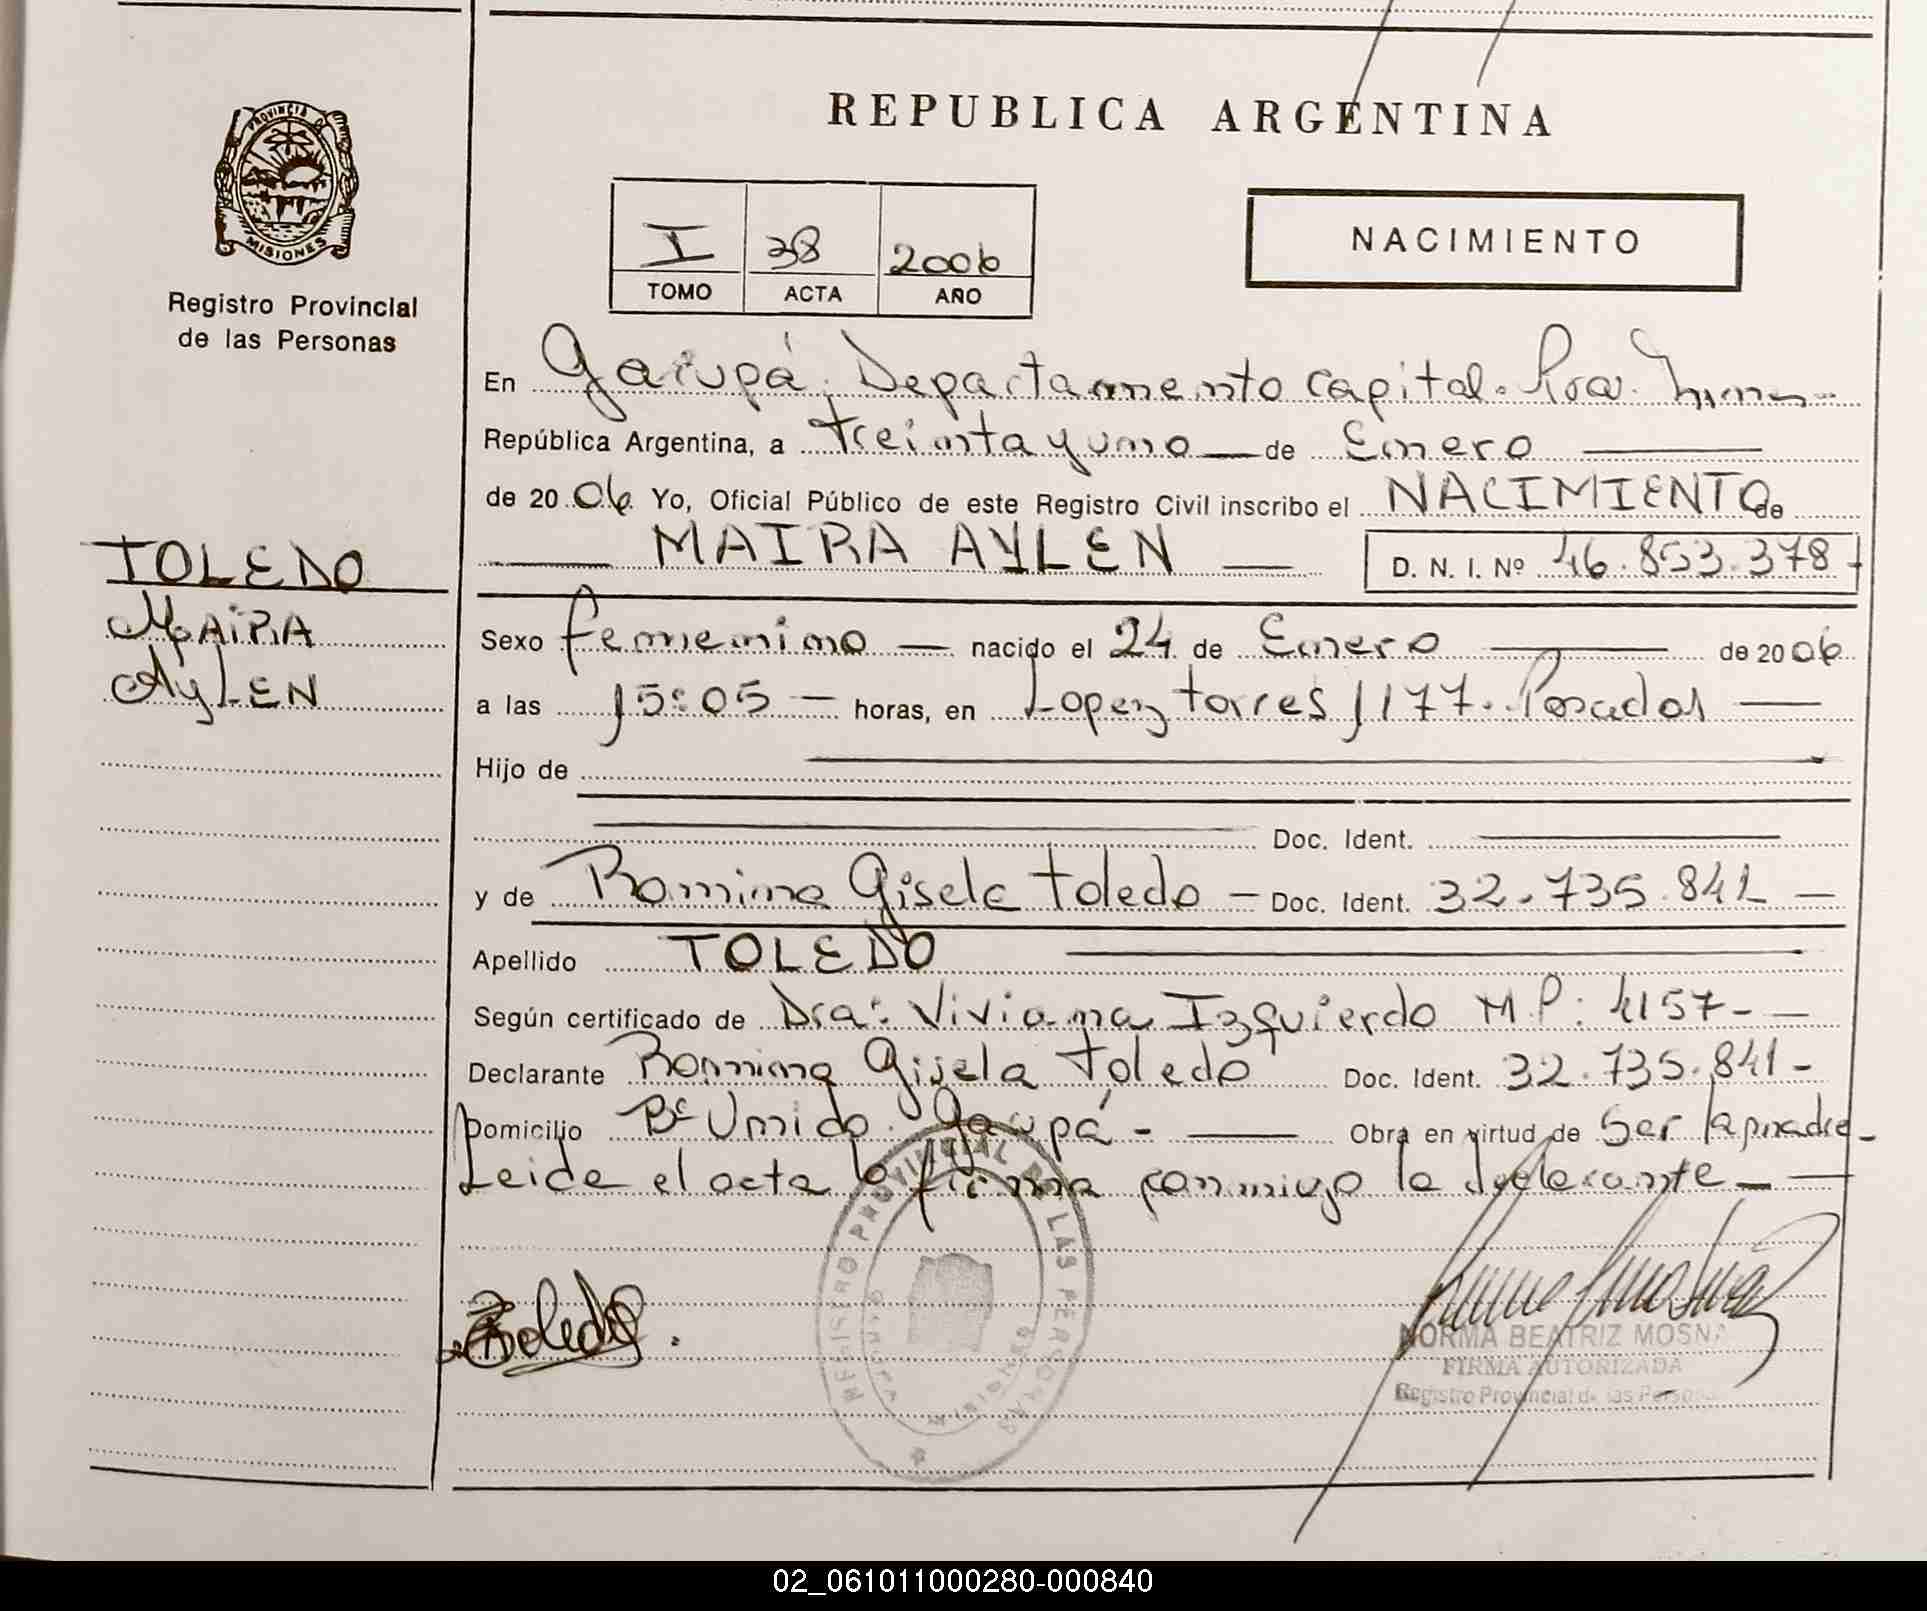 REPUBLICA ARGENTINA
PROVINCIA DE
MISIONES
Registro Provincial
de las Personas
I 38 2006
TOMO ACTA AÑO
NACIMIENTO
En Garupá, Departamento Capital. Pcia.
República Argentina, a treinta y uno de Enero
de 2006 Yo, Oficial Público de este Registro Civil inscribo el NACIMIENTO de
MAIRA AYLEN D. N. I. Nº 46.853.378
TOLEDO
MAIRA
AYLEN
Sexo femenino nacido el 24 de Enero de 2006
a las 15:05 horas, en Lopez torres 1177. Posadas
Hijo de
Doc. Ident.
y de Romina Gisela Toledo - Doc. Ident. 32.735.841
Apellido TOLEDO
Según certificado de Dra: Viviana Izquierdo M.P: 4157-
Declarante Romina Gisela Toledo Doc. Ident. 32.735.841-
Domicilio Bº Unido. Garupá - Obra en virtud de Ser la madre-
Leida el acta la firma conmigo la declarante-
REGISTRO PROVINCIAL DE LAS PERSONAS
Toledo
NORMA BEATRIZ MOSNA
FIRMA AUTORIZADA
Registro Provincial de las Personas
02_061011000280-000840